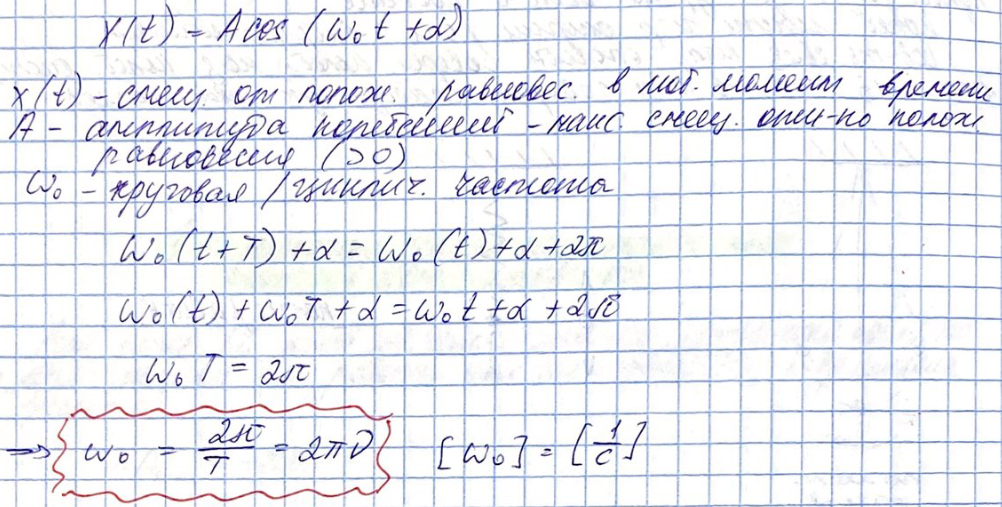 x(t) = A cos (ω₀t + α)
x(t) - смещ. от полож. равновес. в люб. момент времени
A - амплитуда колебаний - наис. смещ. отн-но полож.
равновесия (>0)
ω₀ - круговая / циклич. частота
ω₀(t+T) + α = ω₀(t) + α + 2π
ω₀(t) + ω₀T + α = ω₀t + α + 2π
ω₀T = 2π
=> ω₀ = 2π/T = 2πν [ω₀] = [1/с]